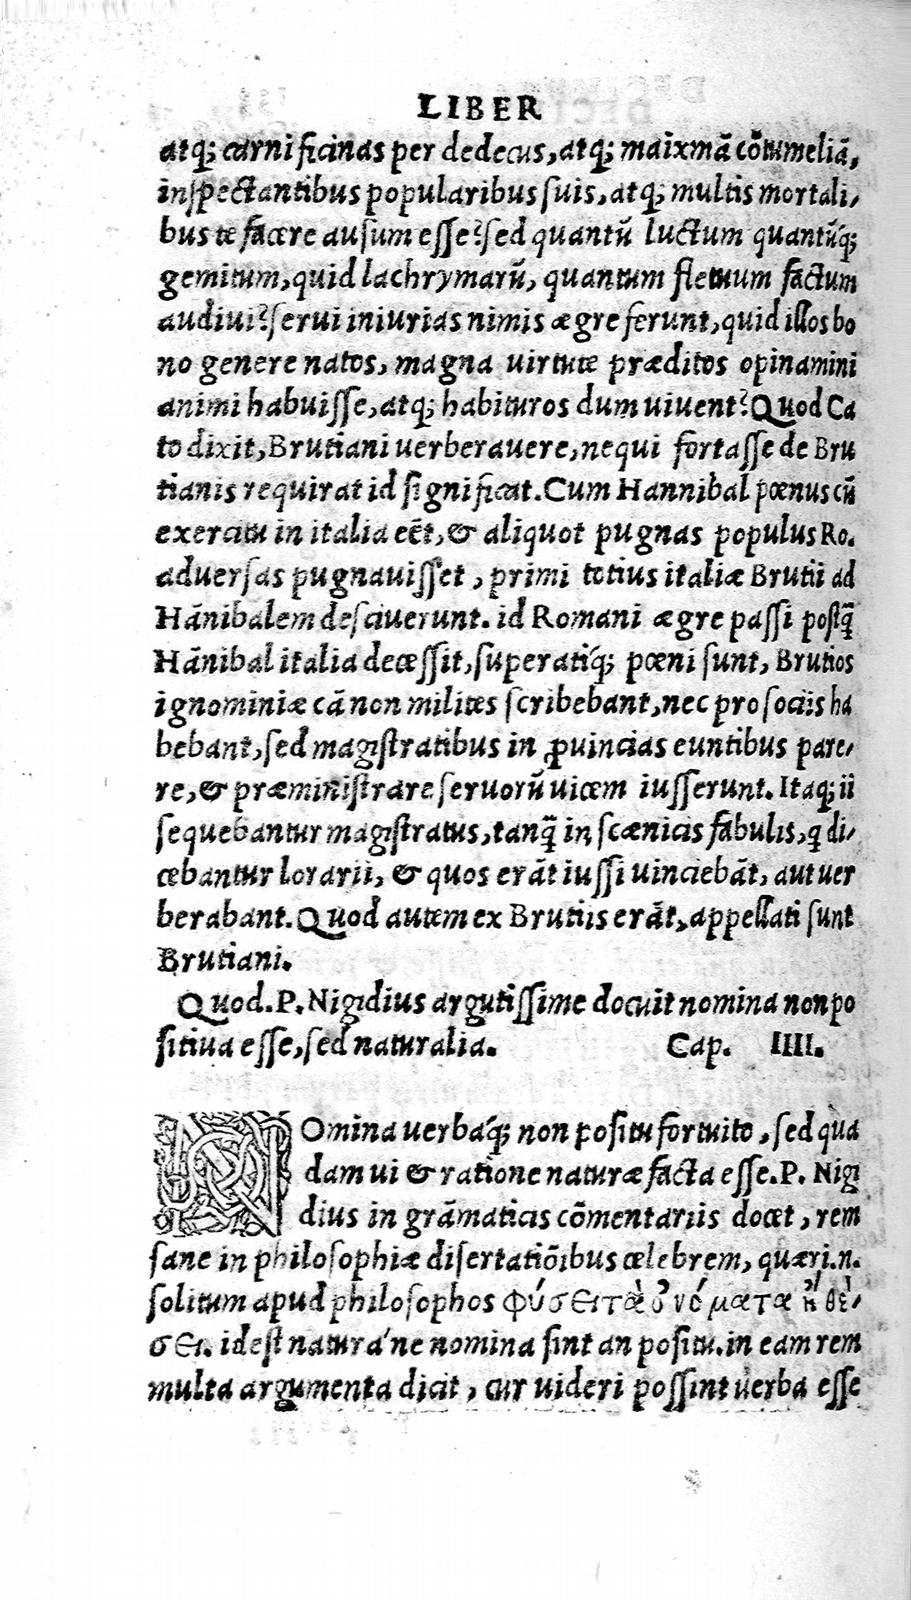 LIBER
atq; carnificinas per dedecus, atq; maixmā cōtumeliā,
inspectantibus popularibus suis, atq; multis mortali,
bus te facere ausum esse? sed quantũ luctum quantũq;
gemitum, quid lachrymarũ, quantum fletuum factum
audiui? serui iniurias nimis ægre ferunt, quid illos bo
no genere natos, magna uirtute præditos opinamini
animi habuisse, atq; habituros dum uiuent? Quod Ca
to dixit, Brutiani uerberauere, nequi fortasse de Bru
tianis requirat id significat. Cum Hannibal pœnus cũ
exercitu in italia eēt, & aliquot pugnas populus Ro.
aduersas pugnauisset, primi totius italiæ Brutii ad
Hānibalem desciuerunt. id Romani ægre passi postq̃
Hānibal italia decessit, superatiq́; pœni sunt, Brutios
ignominiæ cā non milites scribebant, nec pro sociis ha
bebant, sed magistratibus in ꝓuincias euntibus pare,
re, & præministrare seruorũ uicem iusserunt. Itaq; ii
sequebantur magistratus, tanq̃ in scænicis fabulis, q di,
cebantur lorarii, & quos erāt iussi uinciebāt, aut uer
berabant. Quod autem ex Brutiis erāt, appellati sunt
Brutiani.
Quod. P. Nigidius argutissime docuit nomina non po
situa esse, sed naturalia. Cap. IIII.
NOmina uerbaq́; non positu fortuito, sed qua
dam ui & ratione naturæ facta esse. P. Nigi
dius in grāmaticis cōmentariis docet, rem
sane in philosophiæ disertatiōibus celebrem, quæri.n.
solitum apud philosophos φύσει τὰ ὀνόματα ἢ θέ,
σει. idest natura'ne nomina sint an positu. in eam rem
multa argumenta dicit, cur uideri possint uerba esse